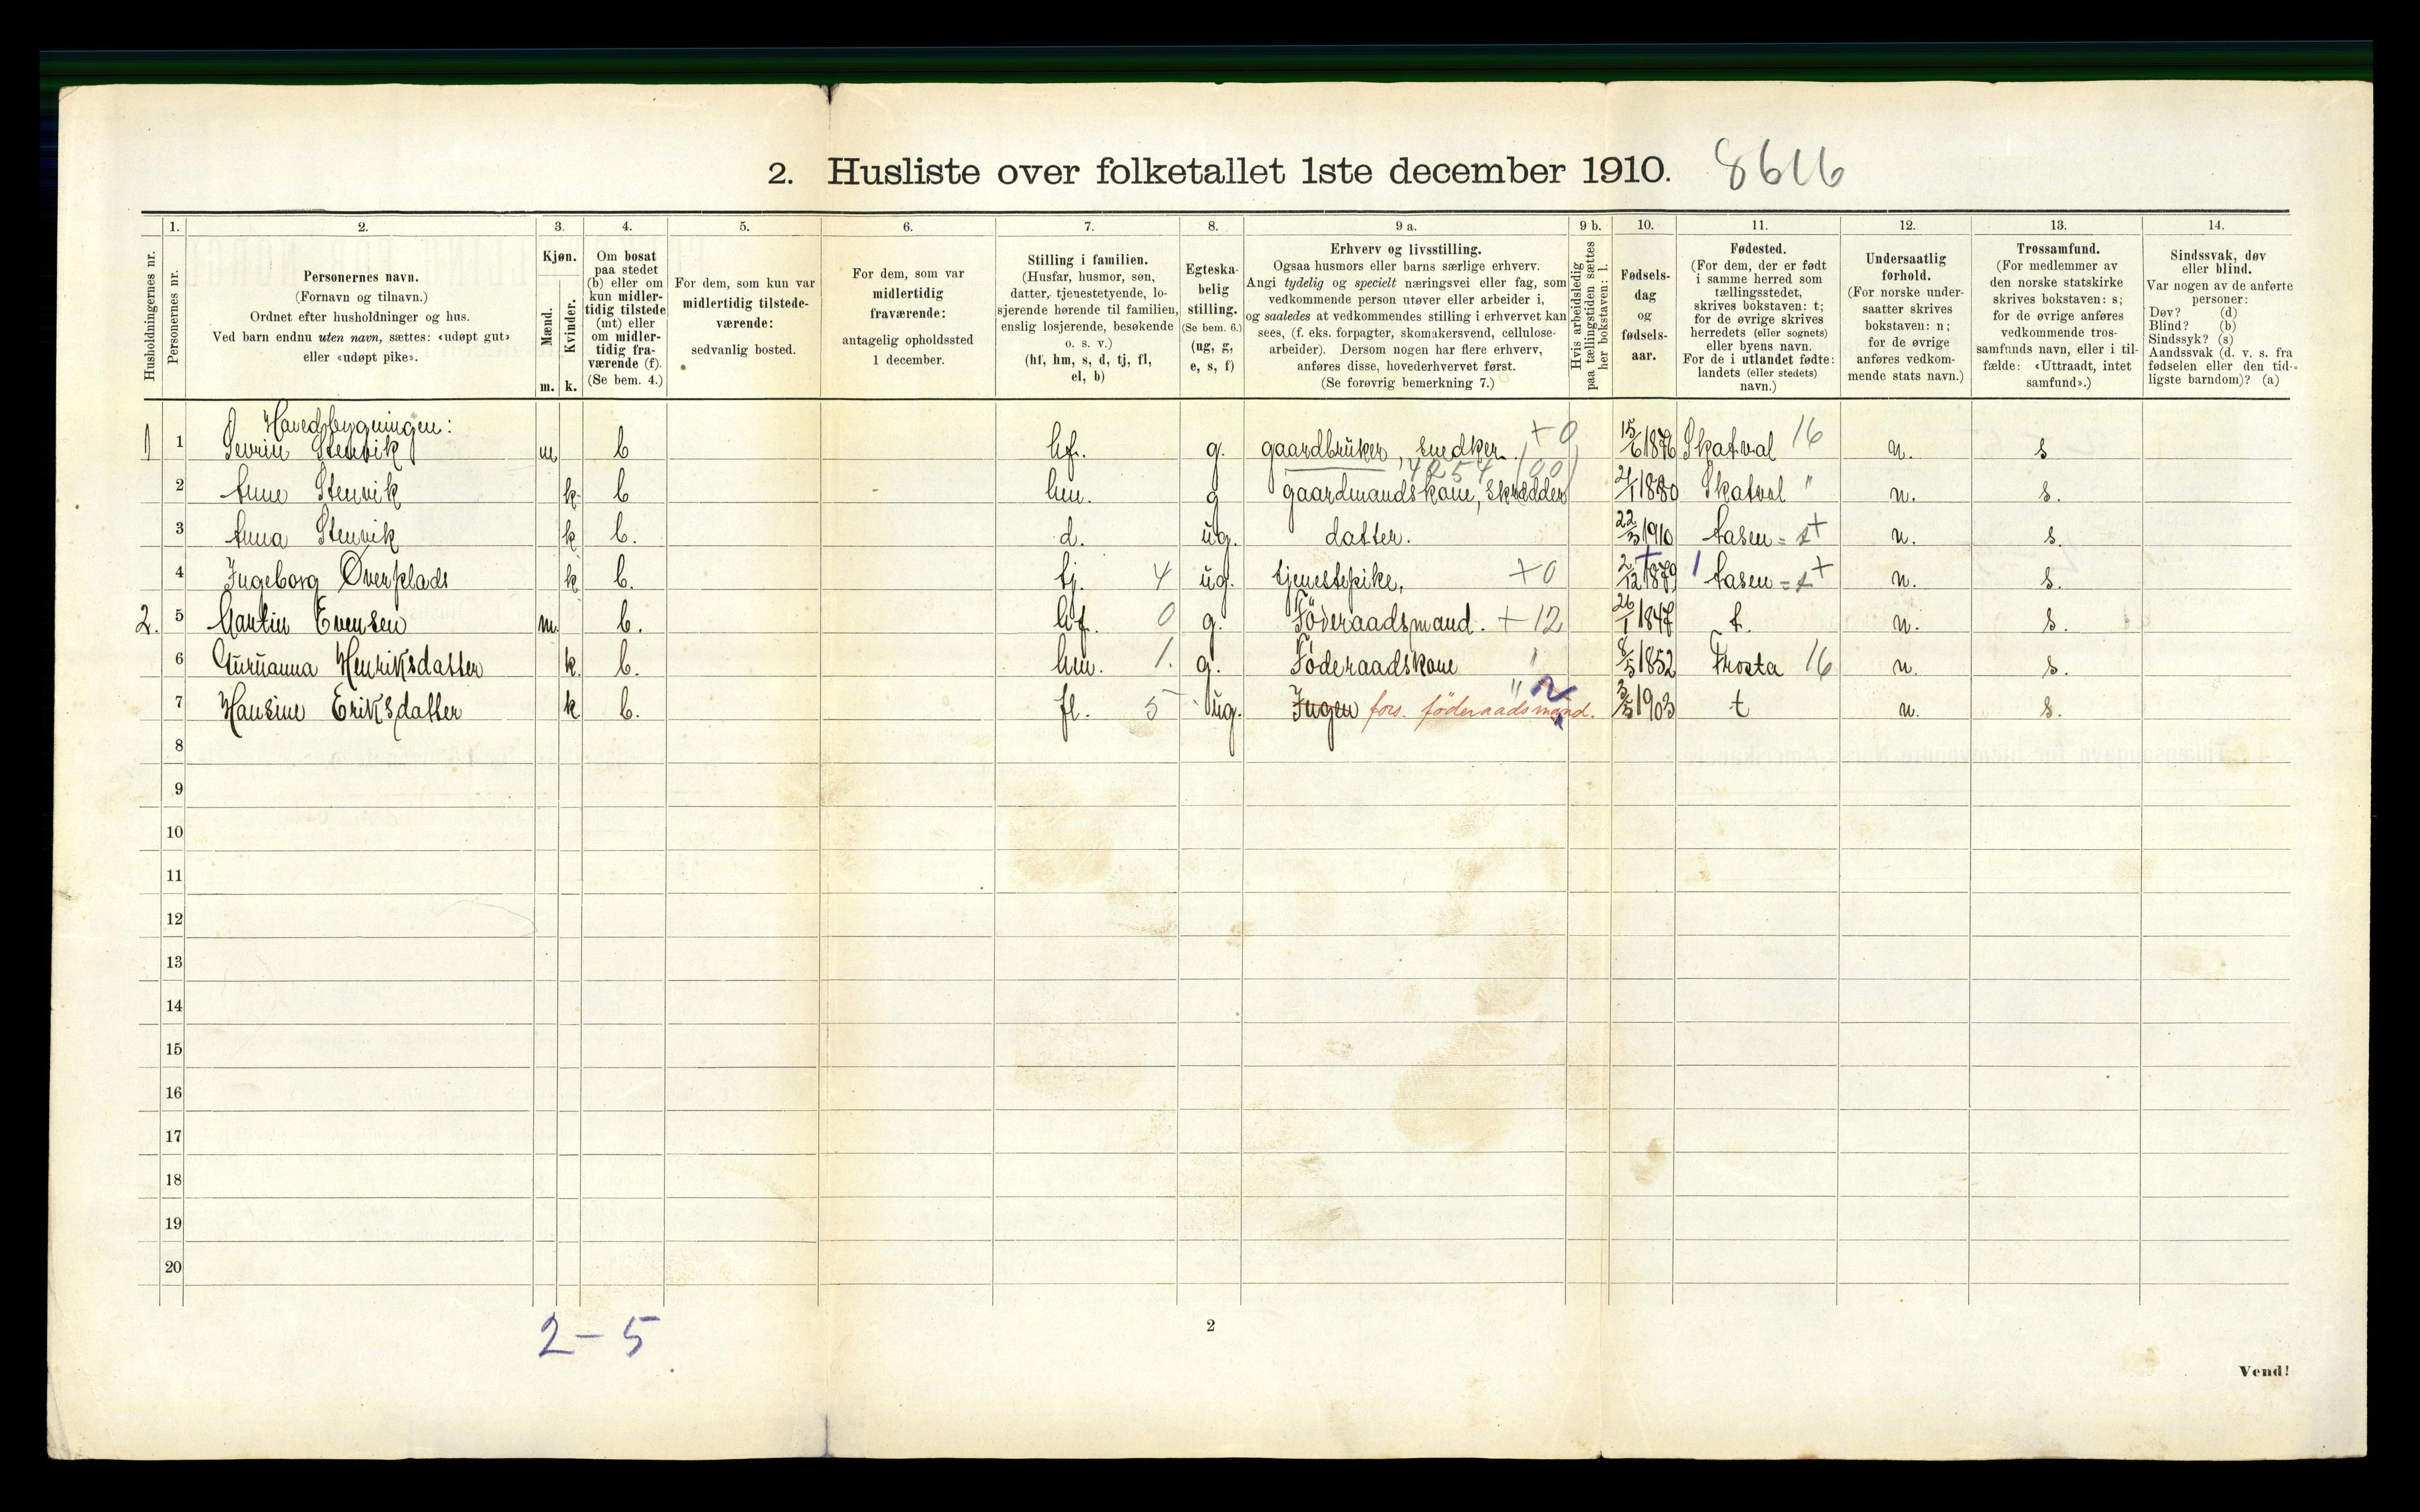 2. Husliste over folketallet 1ste december 1910. 8616
Husholdningernes nr.
1. Personernes nr.
2. Personernes navn.
(Fornavn og tilnavn.)
Ordnet efter husholdninger og hus.
Ved barn endnu uten navn, sættes: «udøpt gut»
eller «udøpt pike».
3. Kjøn.
Mænd. m.
Kvinder. k.
4. Om bosat
paa stedet
(b) eller om
kun midler-
tidig tilstede
(mt) eller
om midler-
tidig fra-
værende (f).
(Se bem. 4.)
5. For dem, som kun var
midlertidig tilstede-
værende:
sedvanlig bosted.
6. For dem, som var
midlertidig
fraværende:
antagelig opholdssted
1 december.
7. Stilling i familien.
(Husfar, husmor, søn,
datter, tjenestetyende, lo-
sjerende hørende til familien,
enslig losjerende, besøkende
o. s. v.)
(hf, hm, s, d, tj, fl,
el, b)
8. Egteska-
belig
stilling.
(Se bem. 6.)
(ug, g,
e, s, f)
9 a. Erhverv og livsstilling.
Ogsaa husmors eller barns særlige erhverv.
Angi tydelig og specielt næringsvei eller fag, som
vedkommende person utøver eller arbeider i,
og saaledes at vedkommendes stilling i erhvervet kan
sees, (f. eks. forpagter, skomakersvend, cellulose-
arbeider). Dersom nogen har flere erhverv,
anføres disse, hovederhvervet først.
(Se forøvrig bemerkning 7.)
9 b. Hvis arbeidsledig
paa tællingstiden sættes
her bokstaven: l.
10. Fødsels-
dag
og
fødsels-
aar.
11. Fødested.
(For dem, der er født
i samme herred som
tællingsstedet,
skrives bokstaven: t;
for de øvrige skrives
herredets (eller sognets)
eller byens navn.
For de i utlandet fødte:
landets (eller stedets)
navn.)
12. Undersaatlig
forhold.
(For norske under-
saatter skrives
bokstaven: n;
for de øvrige
anføres vedkom-
mende stats navn.)
13. Trossamfund.
(For medlemmer av
den norske statskirke
skrives bokstaven: s;
for de øvrige anføres
vedkommende tros-
samfunds navn, eller i til-
fælde: «Uttraadt, intet
samfund».)
14. Sindssvak, døv
eller blind.
Var nogen av de anførte
personer:
Døv? (d)
Blind? (b)
Sindssyk? (s)
Aandssvak (d. v. s. fra
fødselen eller den tid-
ligste barndom)? (a)
Hovedbygningen:
1 1 Sevrin Stenvik m b hf. g. gaardbruker, snedker. +0 15/6 1876 Skatval 16 n. s
4254 (00)
2 Anne Stenvik k b hm. g gaardmandskone, Skrædder 21/1 1880 Skatval " n. s.
3 Anna Stenvik k b. d. ug. datter. 22/3 1910 Aasen = + n. s.
4 Ingeborg Overplads k b. tj. 4 ug. tjenestepike, +0 2/12 1879 Aasen = + n. s.
2. 5 Martin Evensen m. b. hf. 0 g. Föderaadsmand. +12 26/1 1847 t. n. s.
6 Guruanna Henriksdatter k. b. hm. 1. g. Föderaadskone " 8/5 1852 Frosta 16 n. s.
7 Hansine Eriksdatter k b. fl. 5 ug. Ingen fors. föderaadsmand. " 3/5 1903 t n. s.
8
9
10
11
12
13
14
15
16
17
18
19
20
2 - 5
2
Vend!